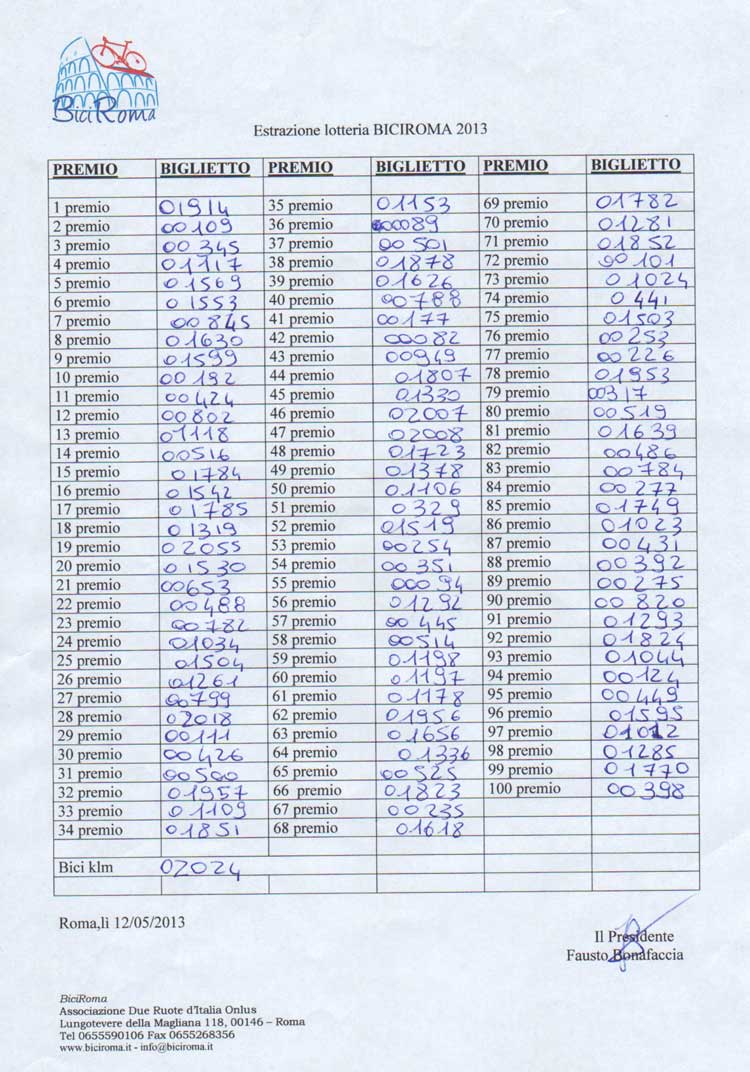 BiciRoma
Estrazione lotteria BICIROMA 2013
PREMIO BIGLIETTO PREMIO BIGLIETTO PREMIO BIGLIETTO
1 premio 01914 35 premio 01153 69 premio 01782
2 premio 00109 36 premio 00089 70 premio 01281
3 premio 00345 37 premio 00501 71 premio 01852
4 premio 01117 38 premio 01878 72 premio 00101
5 premio 01569 39 premio 01626 73 premio 01024
6 premio 01553 40 premio 00788 74 premio 0441
7 premio 00845 41 premio 00177 75 premio 01503
8 premio 01630 42 premio 00082 76 premio 00253
9 premio 01599 43 premio 00949 77 premio 00226
10 premio 00192 44 premio 01807 78 premio 01953
11 premio 00424 45 premio 01330 79 premio 00317
12 premio 00802 46 premio 02007 80 premio 00519
13 premio 01118 47 premio 02008 81 premio 01639
14 premio 00516 48 premio 01723 82 premio 00486
15 premio 01784 49 premio 01378 83 premio 00784
16 premio 01542 50 premio 01106 84 premio 00277
17 premio 01785 51 premio 0329 85 premio 01749
18 premio 01319 52 premio 01519 86 premio 01023
19 premio 02055 53 premio 00254 87 premio 00431
20 premio 01530 54 premio 00351 88 premio 00392
21 premio 00653 55 premio 00094 89 premio 00275
22 premio 00488 56 premio 01292 90 premio 00820
23 premio 00782 57 premio 00445 91 premio 01293
24 premio 01034 58 premio 00514 92 premio 01824
25 premio 01504 59 premio 01198 93 premio 01044
26 premio 01261 60 premio 01197 94 premio 00124
27 premio 00799 61 premio 01178 95 premio 00449
28 premio 02018 62 premio 01956 96 premio 01595
29 premio 00111 63 premio 01656 97 premio 01012
30 premio 00426 64 premio 01336 98 premio 01285
31 premio 00500 65 premio 00525 99 premio 01770
32 premio 01957 66 premio 01823 100 premio 00398
33 premio 01109 67 premio 00235
34 premio 01851 68 premio 01618
Bici klm 02024
Roma,lì 12/05/2013
Il Presidente
Fausto Bonafaccia
BiciRoma
Associazione Due Ruote d'Italia Onlus
Lungotevere della Magliana 118, 00146 – Roma
Tel 0655590106 Fax 0655268356
www.biciroma.it - info@biciroma.it